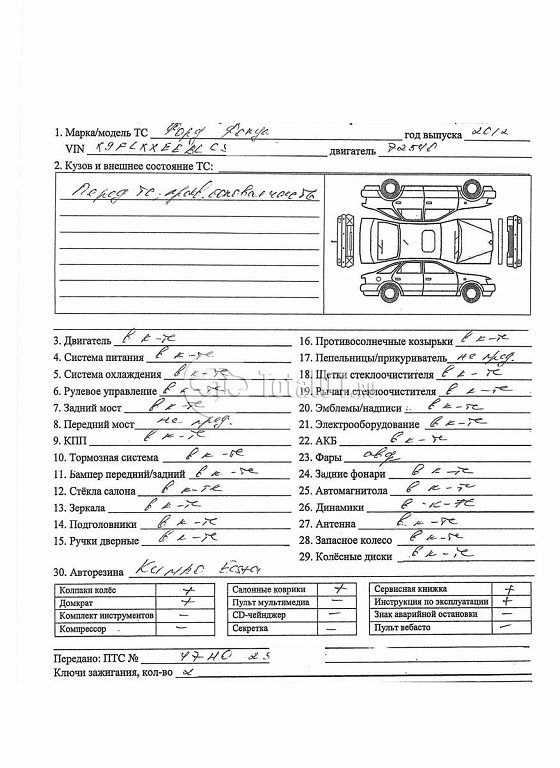 1. Марка/модель ТС Форд Фокус год выпуска 2012
VIN X9FLXXEEBLC3 двигатель
2. Кузов и внешнее состояние ТС:
Перед ТС
3. Двигатель в к-те
16. Противосолнечные козырьки в к-те
4. Система питания в к-те
17. Пепельницы/прикуриватель не пред.
5. Система охлаждения в к-те
18. Щетки стеклоочистителя в к-те
6. Рулевое управление в к-те
19. Рычаги стеклоочистителя в к-те
7. Задний мост в к-те
20. Эмблемы/надписи в к-те
8. Передний мост не пред.
21. Электрооборудование в к-те
9. КПП в к-те
22. АКБ в к-те
10. Тормозная система в к-те
23. Фары
11. Бампер передний/задний в к-те
24. Задние фонари в к-те
12. Стёкла салона в к-те
25. Автомагнитола в к-те
13. Зеркала в к-те
26. Динамики в к-те
14. Подголовники в к-те
27. Антенна в к-те
15. Ручки дверные в к-те
28. Запасное колесо в к-те
29. Колёсные диски в к-те
30. Авторезина
Колпаки колёс + Салонные коврики + Сервисная книжка +
Домкрат + Пульт мультимедиа – Инструкция по эксплуатации +
Комплект инструментов – CD-чейнджер – Знак аварийной остановки –
Компрессор – Секретка – Пульт вебасто –
Передано: ПТС № 47НО 23
Ключи зажигания, кол-во 2